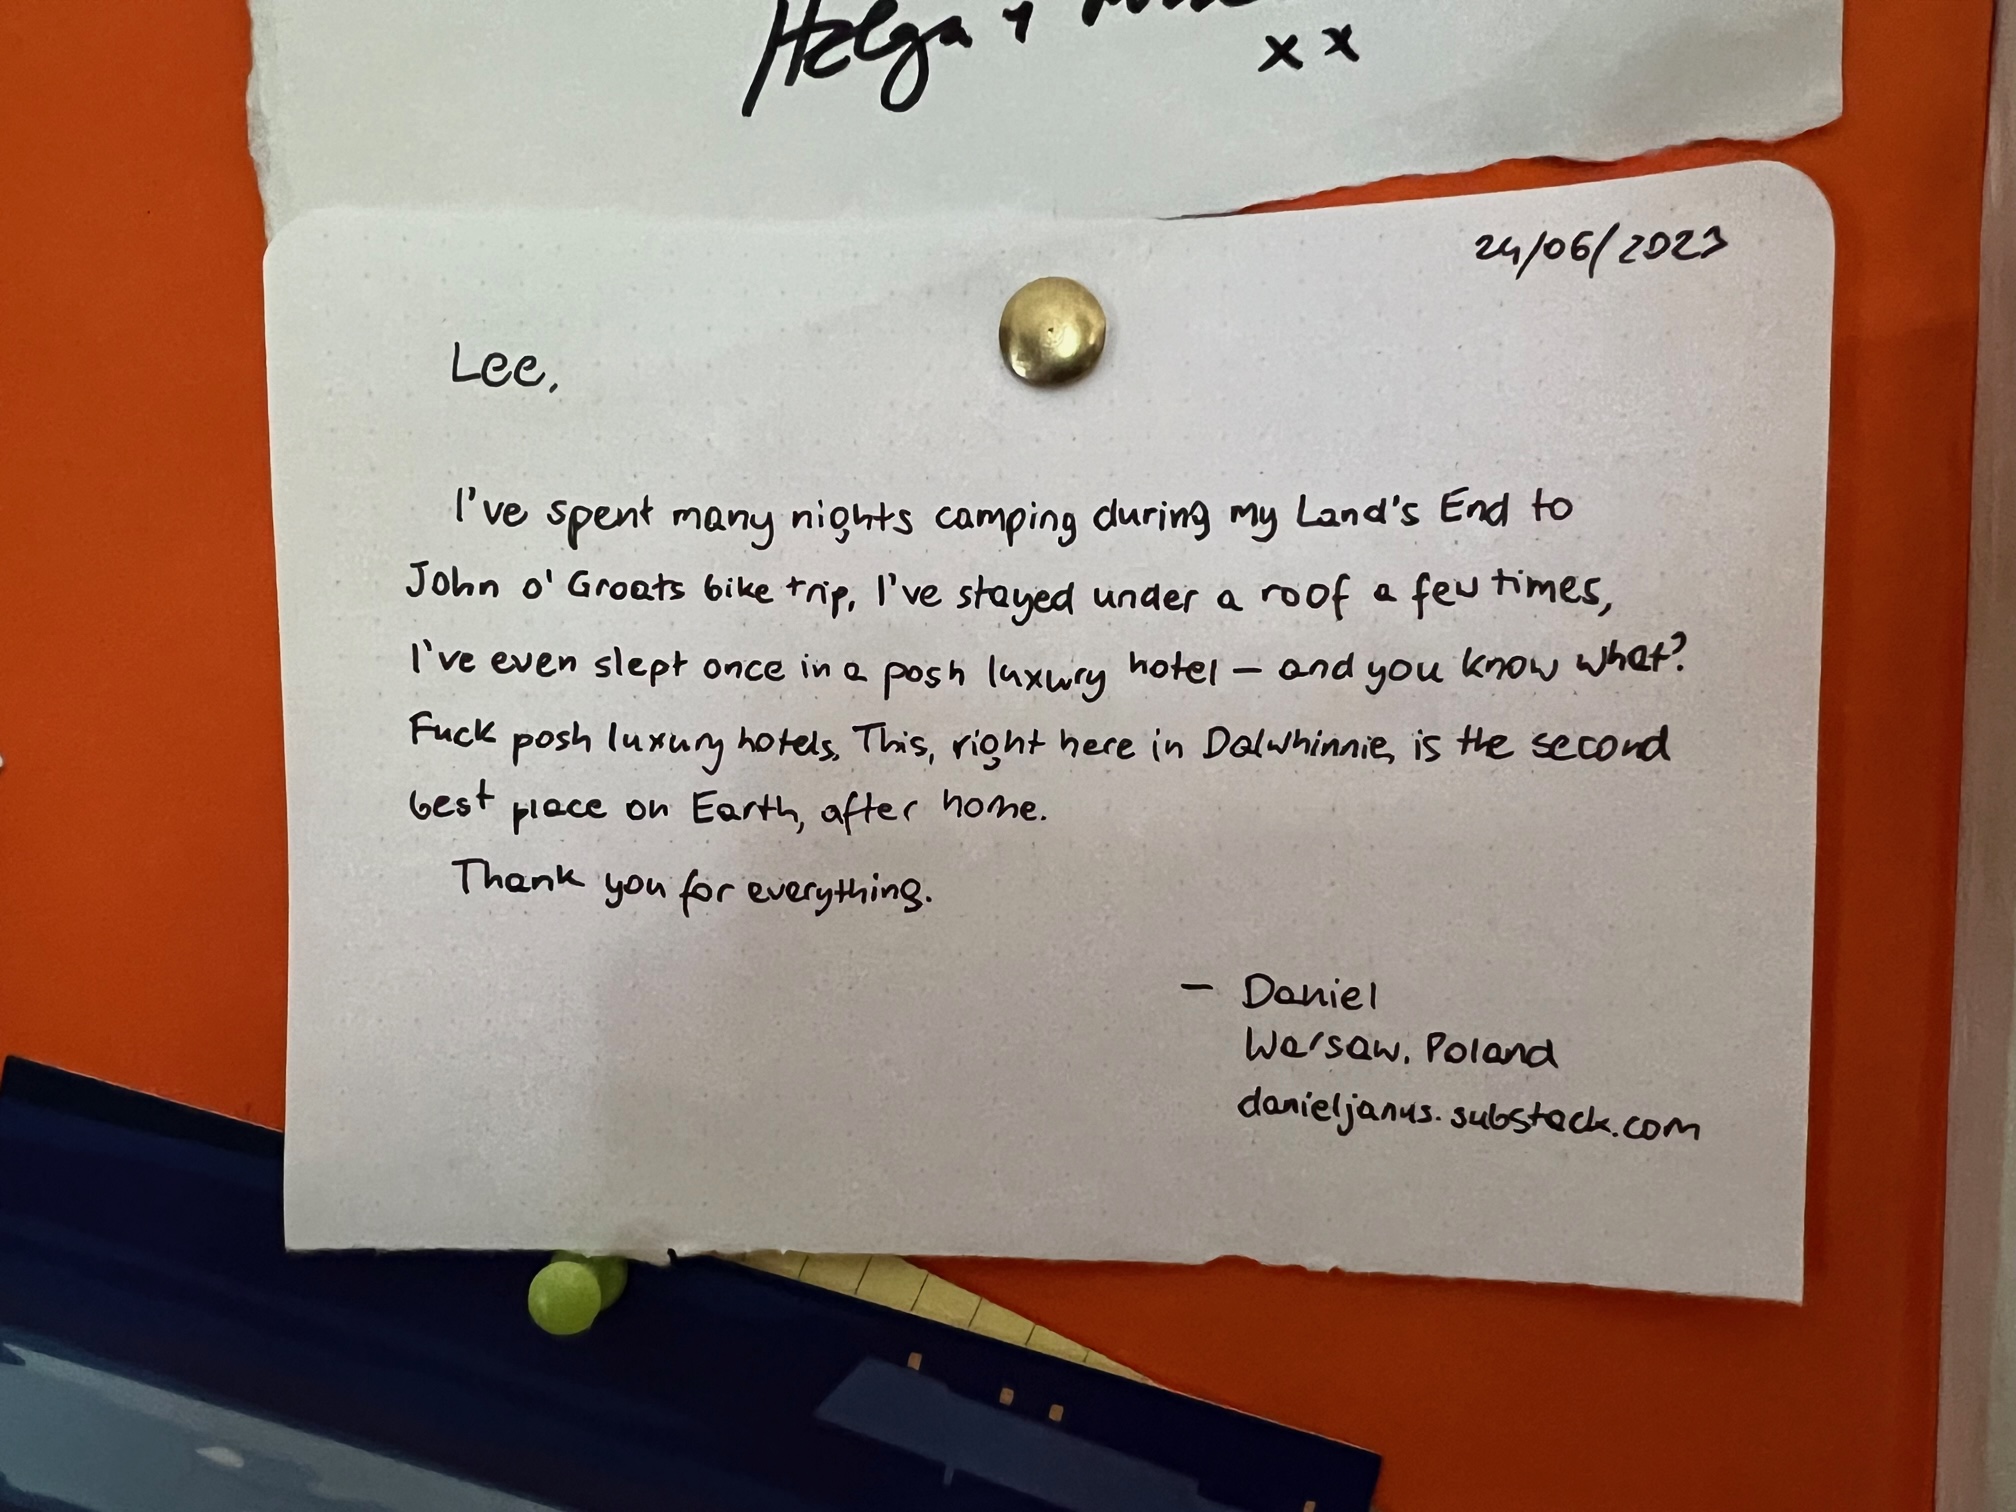 Helga +
x x
24/06/2023
Lee,
I've spent many nights camping during my Land's End to
John o' Groats bike trip, I've stayed under a roof a few times,
I've even slept once in a posh luxury hotel – and you know what?
Fuck posh luxury hotels. This, right here in Dalwhinnie, is the second
best place on Earth, after home.
Thank you for everything.
– Daniel
Warsaw, Poland
danieljanus.substack.com